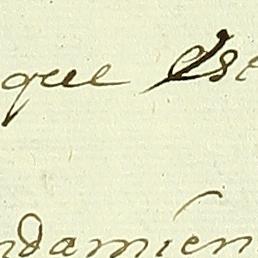 que ese
ndamien